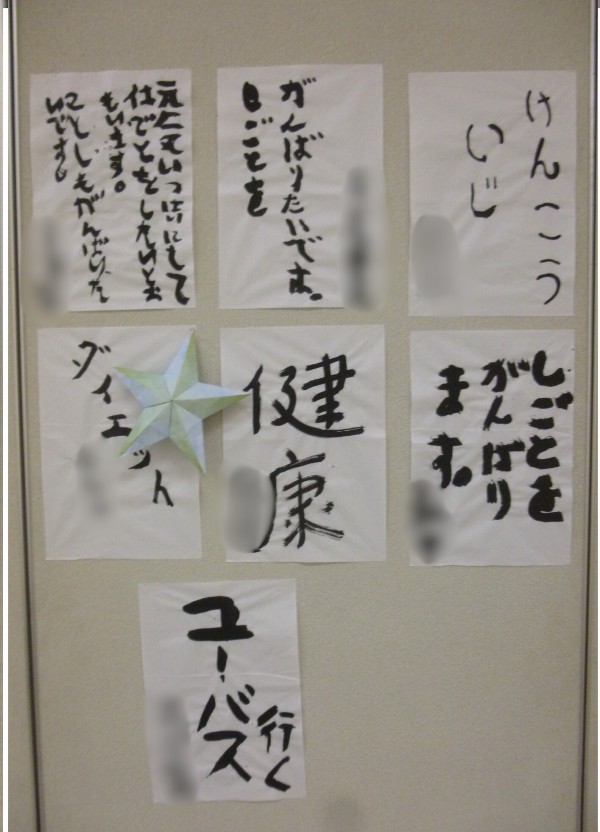 けんこう
いじ
日ごとを
がんばりたいです。
仕ごとをしたいとお
もいます。
ことしもがんばりた
いです。
しごとを
がんばり
ます。
健康
ダイエット
ユーバス
行く